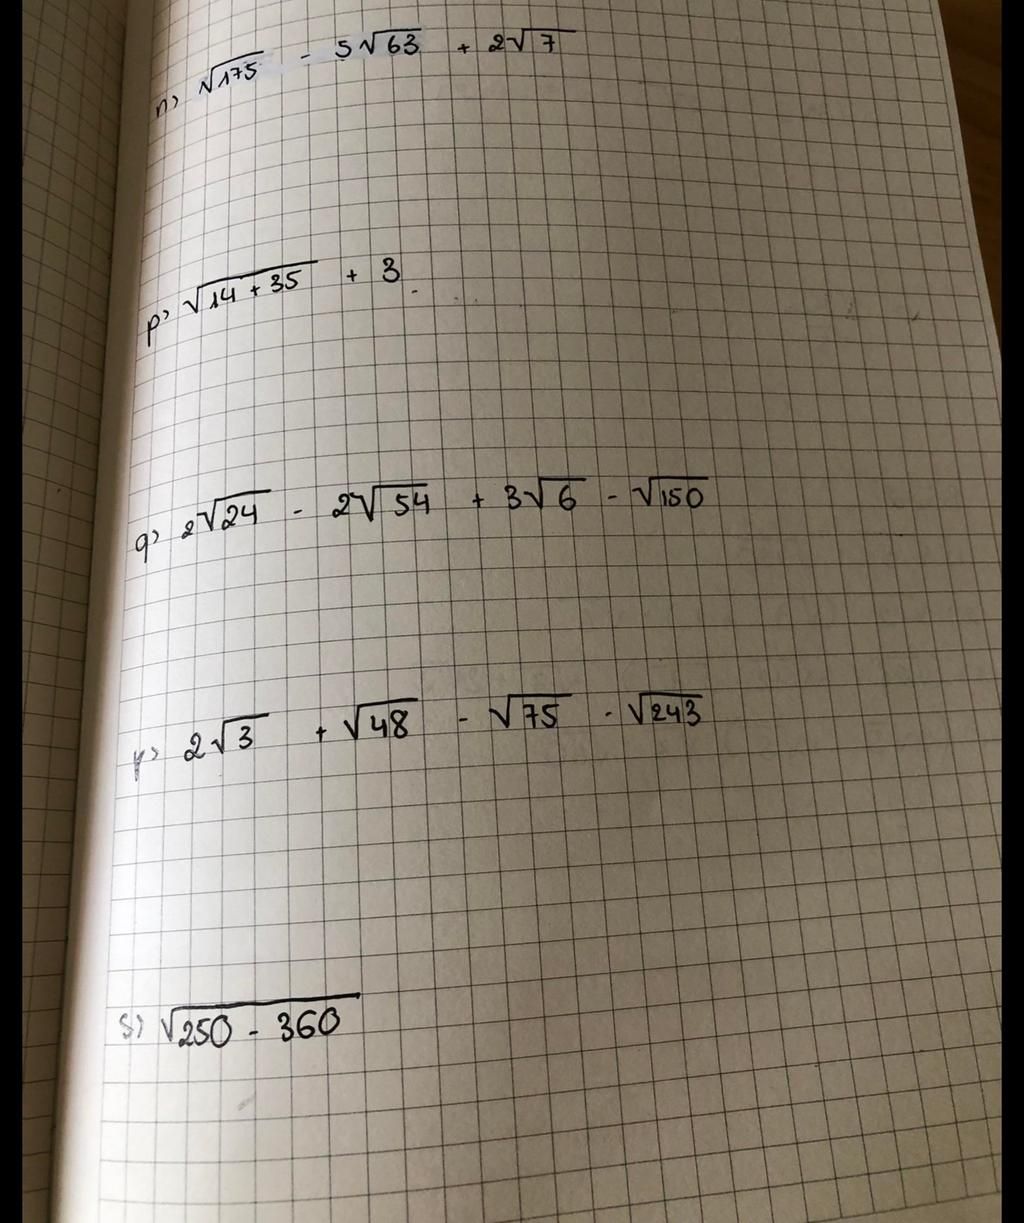 n) √175 - 5√63 + 2√7
p) √(14 + 35) + 3
q) 2√24 - 2√54 + 3√6 - √150
r) 2√3 + √48 - √75 - √243
s) √(250 - 360)